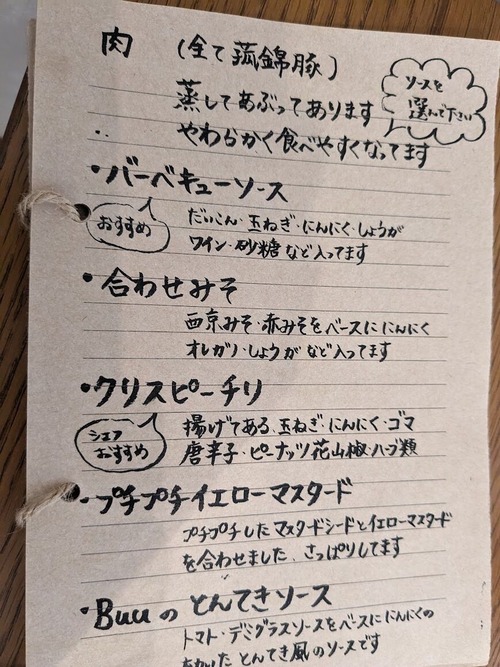 肉 (全て菰錦豚)
ソースを
選んで下さい
蒸してあぶってあります
やわらかく食べやすくなってます
・バーベキューソース
おすすめ
だいこん・玉ねぎ・にんにく・しょうが
ワイン・砂糖など入ってます
・合わせみそ
西京みそ・赤みそをベースににんにく
オレガノ・しょうがなど入ってます
・クリスピーチリ
シェフ
おすすめ
揚げてある、玉ねぎ・にんにく・ゴマ
唐辛子・ピーナッツ花山椒・ハーブ類
・プチプチイエローマスタード
プチプチしたマスタードシードとイエローマスタード
を合わせました、さっぱりしてます
・Buuのとんてきソース
トマト・デミグラスソースをベースににんにくの
とんてき風のソースです